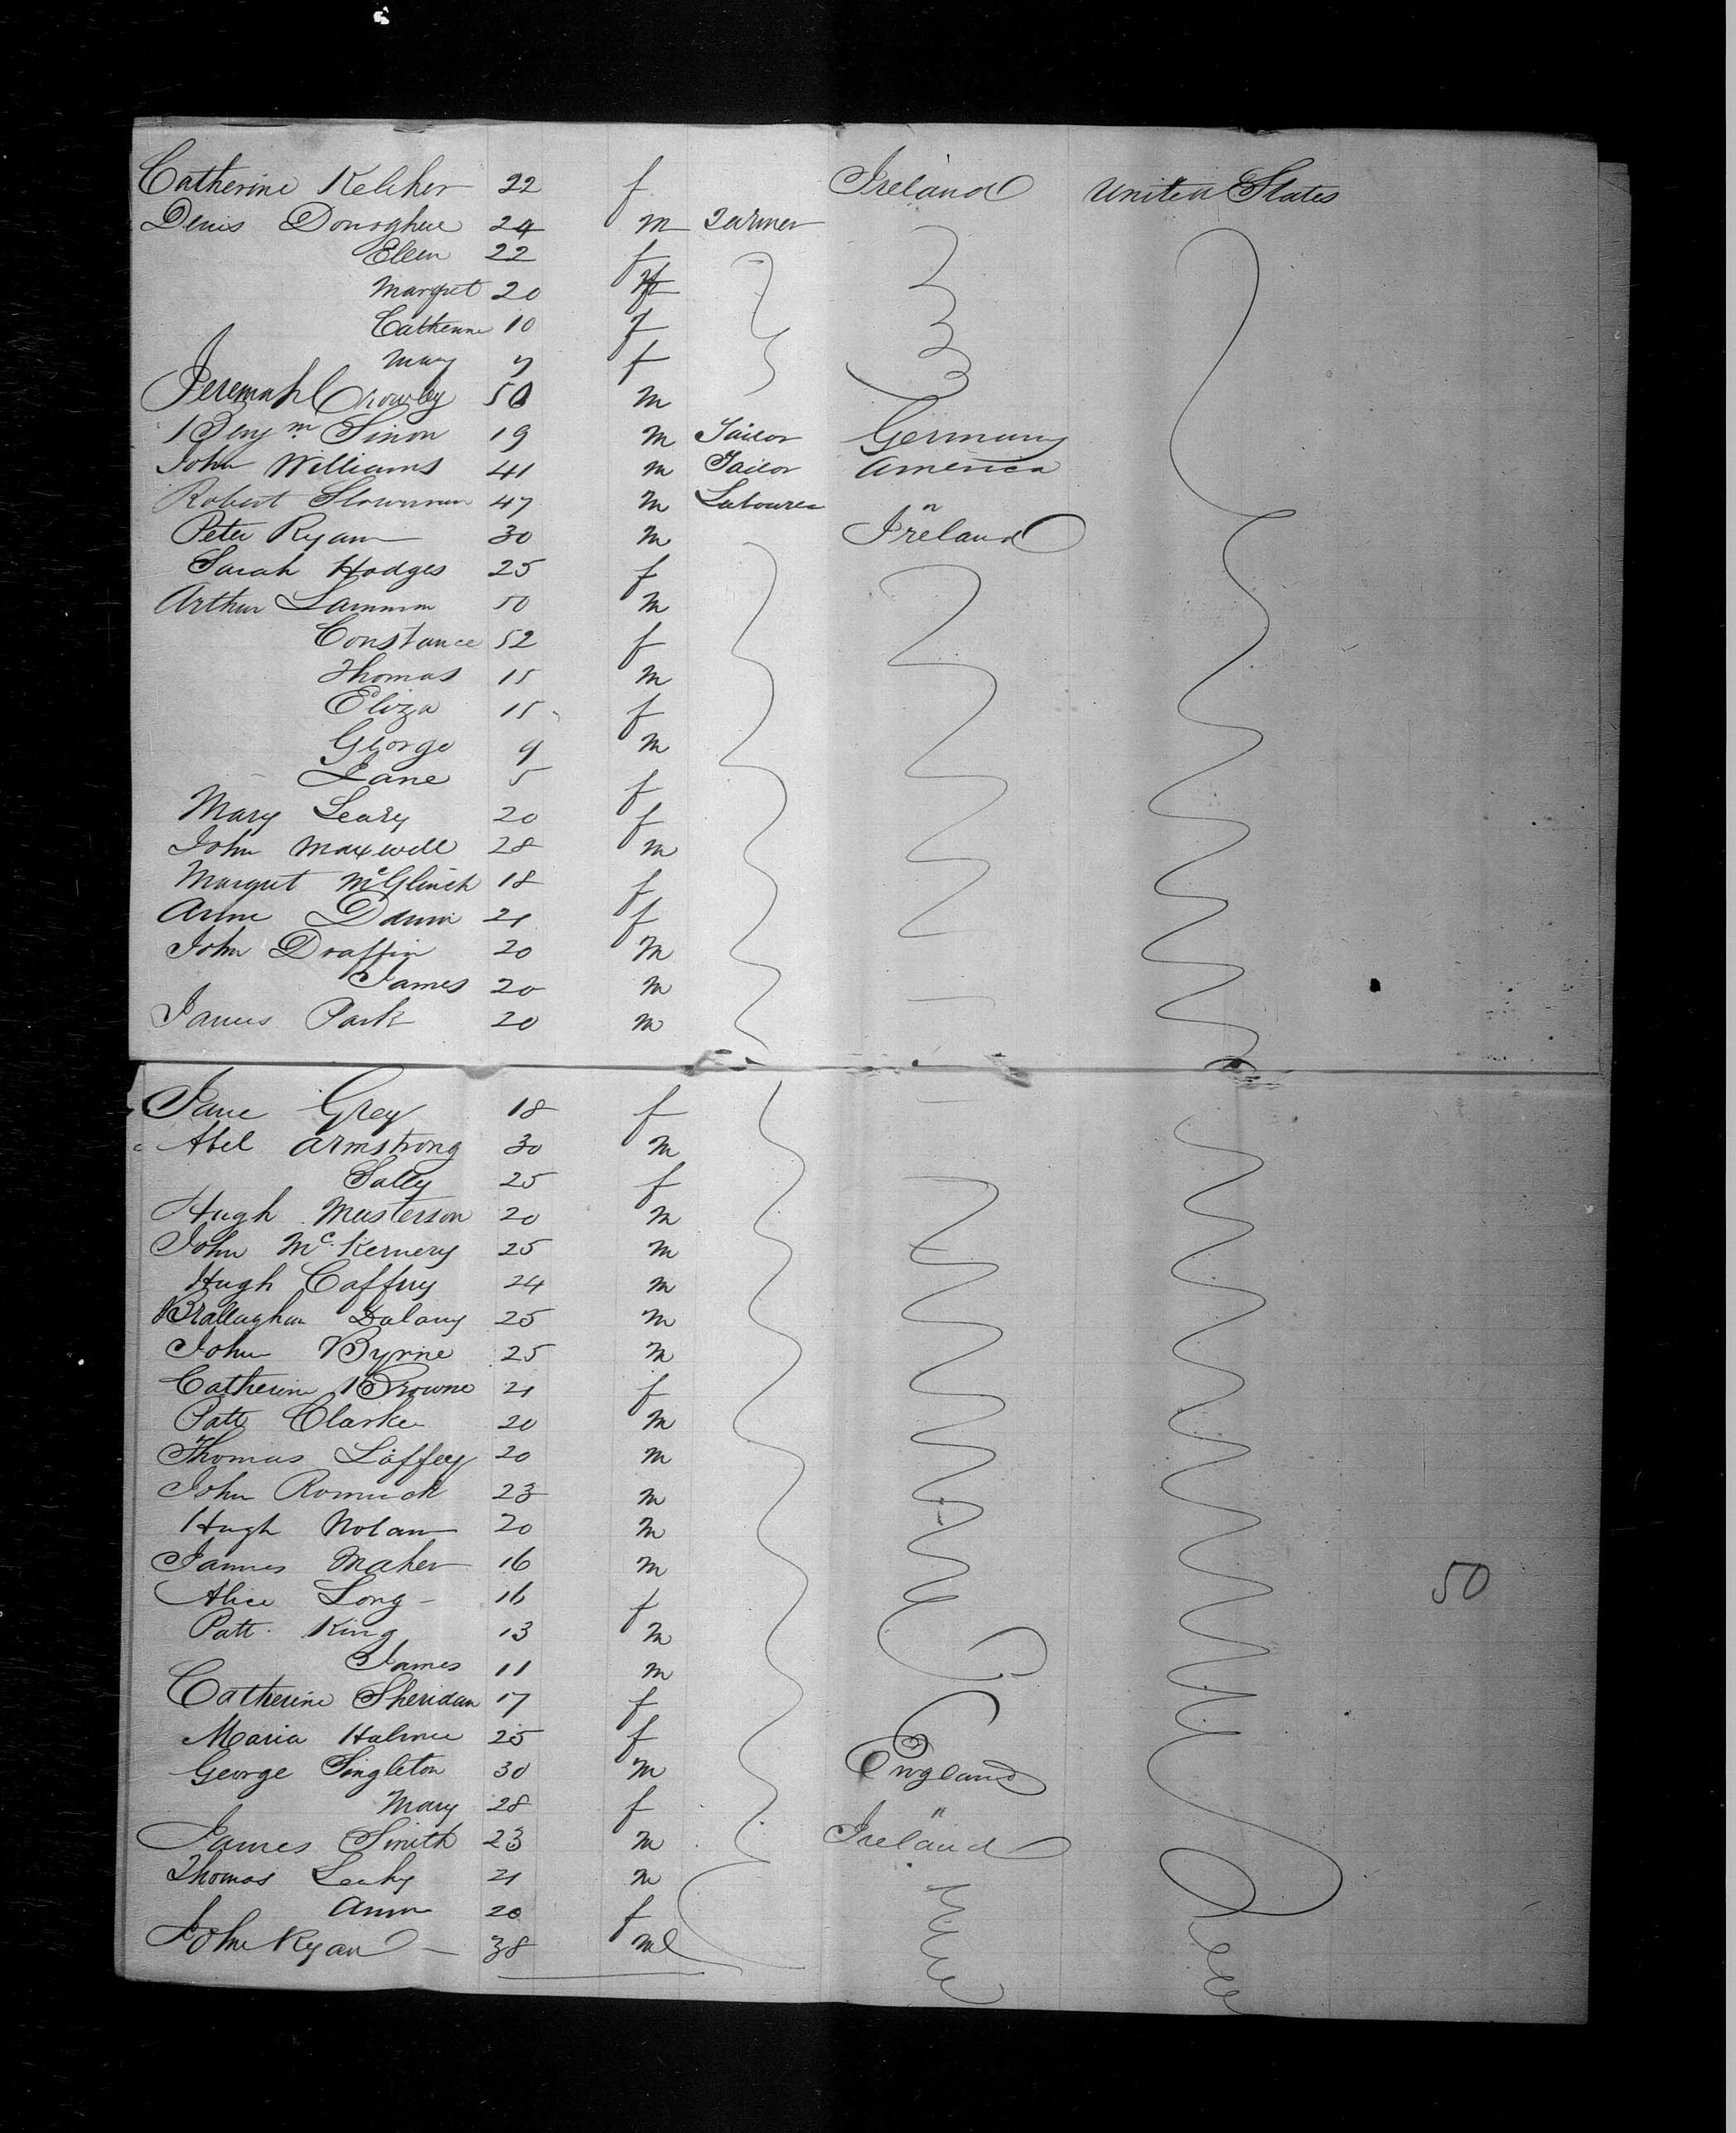 Catherine Keleher 22 f Ireland United States
Denis Donoghue 24 m Farmer
Ellen 22 f
Margret 20 f
Catherine 10 f
Mary 7 f
Jeremiah Crowley 50 m
Benjm Simon 19 m Tailor Germany
John Williams 41 m Tailor America
Robert 47 m Labourer "
Peter Ryan 30 m Ireland
Sarah Hodges 25 f
Arthur 50 m
Constance 52 f
Thomas 15 m
Eliza 15 f
George 9 m
Jane 5 f
Mary Leary 20 f
John Maxwell 28 m
Margret McGlinch 18 f
Anne 21 f
John Draffin 20 m
James 20 m
James Park 20 m
Jane Grey 18 f
Abel Armstrong 30 m
Sally 25 f
Hugh Masterson 20 m
John McKernery 25 m
Hugh Caffrey 24 m
Brallaghan Dulany 25 m
John Byrne 25 m
Catherine Browne 21 f
Patt Clarke 20 m
Thomas Laffey 20 m
John 23 m
Hugh Nolan 20 m
James Maher 16 m
Alice Long 16 f
Patt. King 13 m
James 11 m
Catherine Sheridan 17 f
Maria 25 f
George Singleton 30 m England
Mary 28 f "
James Smith 23 m Ireland
Thomas Leahy 21 m
Ann 20 f
John Ryan 38 m
50